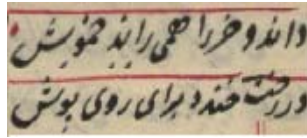 داند و خر را همی راند خموش
در رخت خندد برای روی پوش